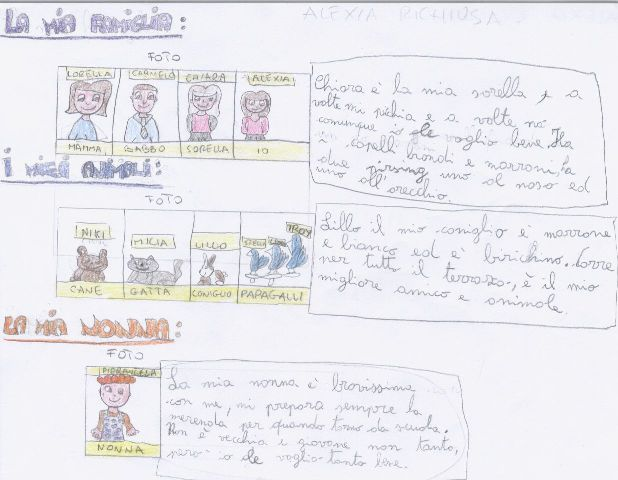 LA MIA FAMIGLIA:
ALEXIA
FOTO
LORELLA CARMELO CHIARA ALEXIA
MAMMA BABBO SORELLA IO
Chiara è la mia sorella, e a
volte mi pichia e a volte no
comunque io le voglio bene. Ha
i capelli biondi e marroni, ha
due pirsing, uno al naso ed
uno all'orecchio.
I MIEI ANIMALI:
FOTO
NIKI MICIA LILLO TROY
CANE GATTA CONIGLIO PAPAGALLI
Lillo il mio coniglio è marrone
e bianco ed è birichino. Corre
per tutto il terrazzo, è il mio
migliore amico e animale.
LA MIA NONNA:
FOTO
PIERANGELA
NONNA
La mia nonna è bravissima
con me, mi prepara sempre la
merenda per quando torno da scuola.
Non è vecchia e giovane non tanto,
però io le voglio tanto bene.